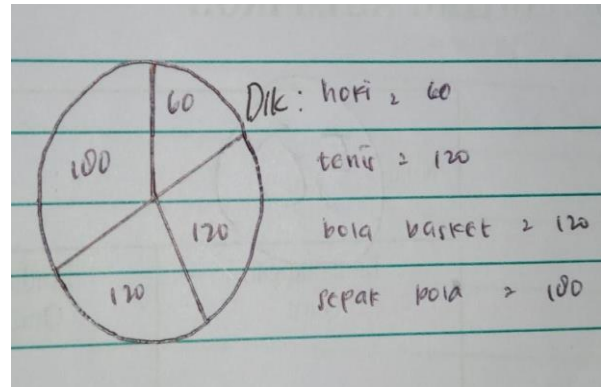 60
180
120
120
Dik: hoki = 60
tenis = 120
bola basket = 120
sepak bola = 180